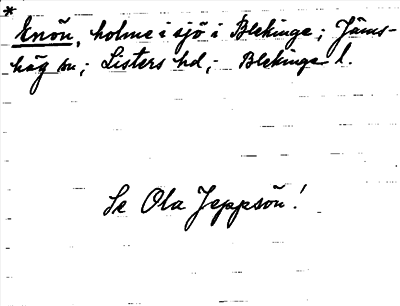 *
Enön, holme i sjö i Blekinge; Jäms-
hög sn; Listers hd; Blekinge l.
Se Ola Jeppsön!